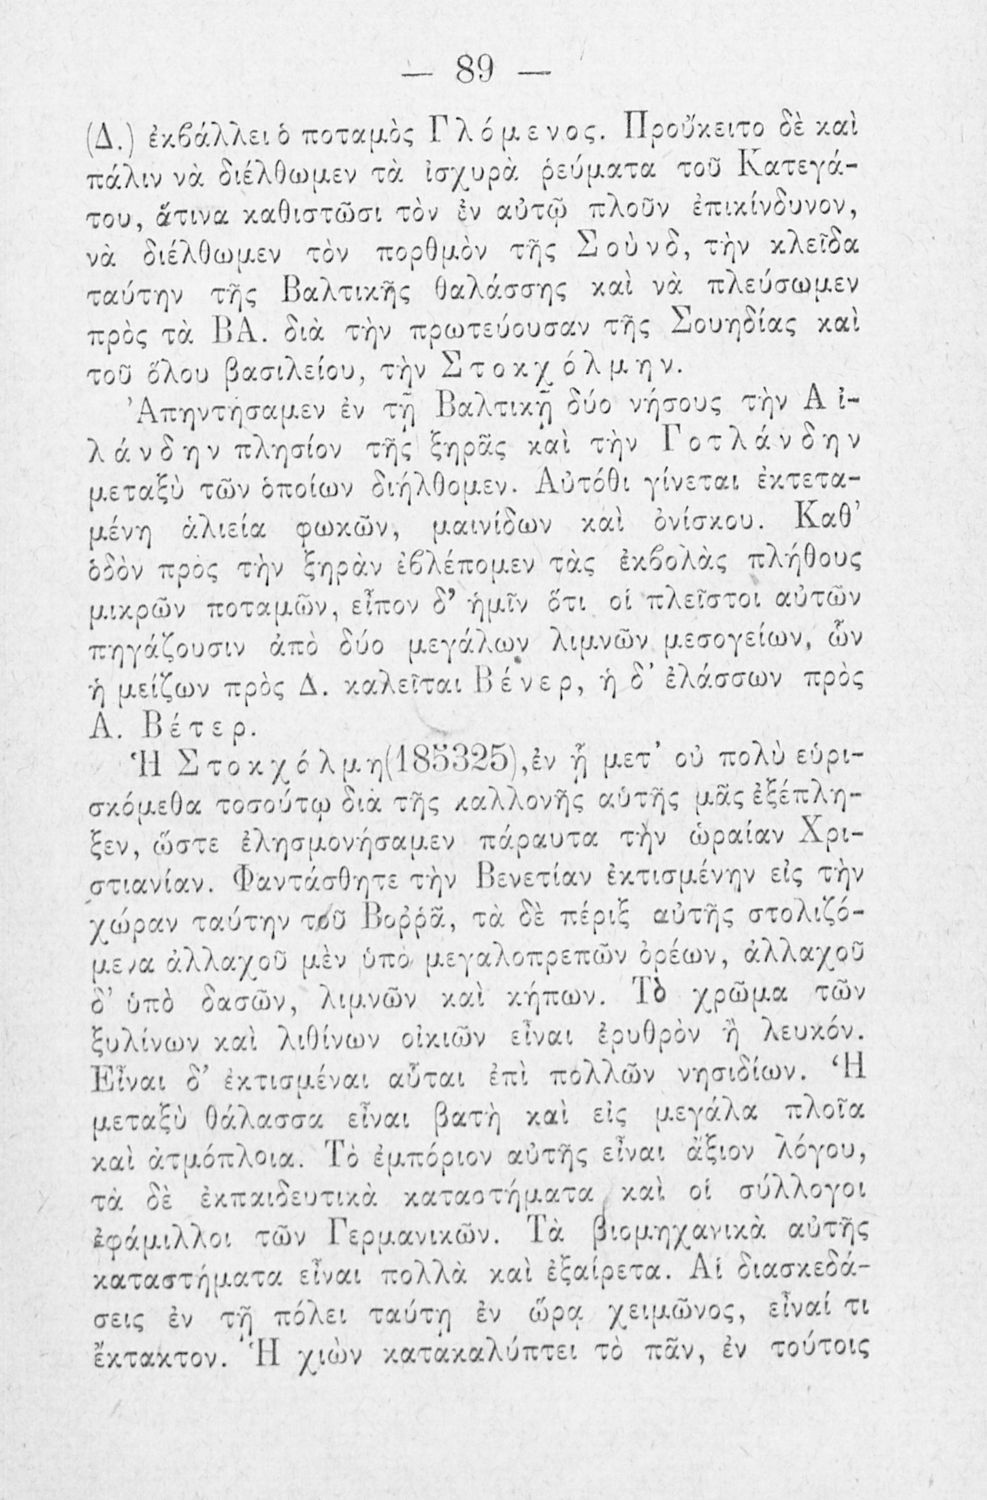 — 89 —
(Δ.) ἐκβάλλει ὁ ποταμὸς Γλόμενος. Προὔκειτο δὲ καὶ
πάλιν νὰ διέλθωμεν τὰ ἰσχυρὰ ῥεύματα τοῦ Κατεγά-
του, ἅτινα καθιστῶσι τὸν ἐν αὐτῷ πλοῦν ἐπικίνδυνον,
νὰ διέλθωμεν τὸν πορθμὸν τῆς Σοὺνδ, τὴν κλεῖδα
ταύτην τῆς Βαλτικῆς θαλάσσης καὶ νὰ πλεύσωμεν
πρὸς τὰ ΒΑ. διὰ τὴν πρωτεύουσαν τῆς Σουηδίας καὶ
τοῦ ὅλου βασιλείου, τὴν Στοκχόλμην.
Ἀπηντήσαμεν ἐν τῇ Βαλτικῇ δύο νήσους τὴν Αἰ-
λάνδην πλησίον τῆς ξηρᾶς καὶ τὴν Γοτλάνδην
μεταξὺ τῶν ὁποίων διήλθομεν. Αὐτόθι γίνεται ἐκτετα-
μένη ἁλιεία φωκῶν, μαινίδων καὶ ὀνίσκου. Καθ'
ὁδὸν πρὸς τὴν ξηρὰν ἐβλέπομεν τὰς ἐκβολὰς πλήθους
μικρῶν ποταμῶν, εἶπον δ' ἡμῖν ὅτι οἱ πλεῖστοι αὐτῶν
πηγάζουσιν ἀπὸ δύο μεγάλων λιμνῶν μεσογείων, ὧν
ἡ μείζων πρὸς Δ. καλεῖται Βένερ, ἡ δ' ἐλάσσων πρὸς
Α. Βέτερ.
Ἡ Στοκχόλμη(185325), ἐν ᾗ μετ' οὐ πολὺ εὑρι-
σκόμεθα τοσούτῳ διὰ τῆς καλλονῆς αὑτῆς μᾶς ἐξέπλη-
ξεν, ὥστε ἐλησμονήσαμεν πάραυτα τὴν ὡραίαν Χρι-
στιανίαν. Φαντάσθητε τὴν Βενετίαν ἐκτισμένην εἰς τὴν
χώραν ταύτην τοῦ Βοῤῥᾶ, τὰ δὲ πέριξ αὐτῆς στολιζό-
μενα ἀλλαχοῦ μὲν ὑπὸ μεγαλοπρεπῶν ὀρέων, ἀλλαχοῦ
δ' ὑπὸ δασῶν, λιμνῶν καὶ κήπων. Τὸ χρῶμα τῶν
ξυλίνων καὶ λιθίνων οἰκιῶν εἶναι ἐρυθρὸν ἢ λευκόν.
Εἶναι δ' ἐκτισμέναι αὗται ἐπὶ πολλῶν νησιδίων. Ἡ
μεταξὺ θάλασσα εἶναι βατὴ καὶ εἰς μεγάλα πλοῖα
καὶ ἀτμόπλοια. Τὸ ἐμπόριον αὐτῆς εἶναι ἄξιον λόγου,
τὰ δὲ ἐκπαιδευτικὰ καταστήματα καὶ οἱ σύλλογοι
ἐφάμιλλοι τῶν Γερμανικῶν. Τὰ βιομηχανικὰ αὐτῆς
καταστήματα εἶναι πολλὰ καὶ ἐξαίρετα. Αἱ διασκεδά-
σεις ἐν τῇ πόλει ταύτῃ ἐν ὥρᾳ χειμῶνος, εἶναί τι
ἔκτακτον. Ἡ χιὼν κατακαλύπτει τὸ πᾶν, ἐν τούτοις